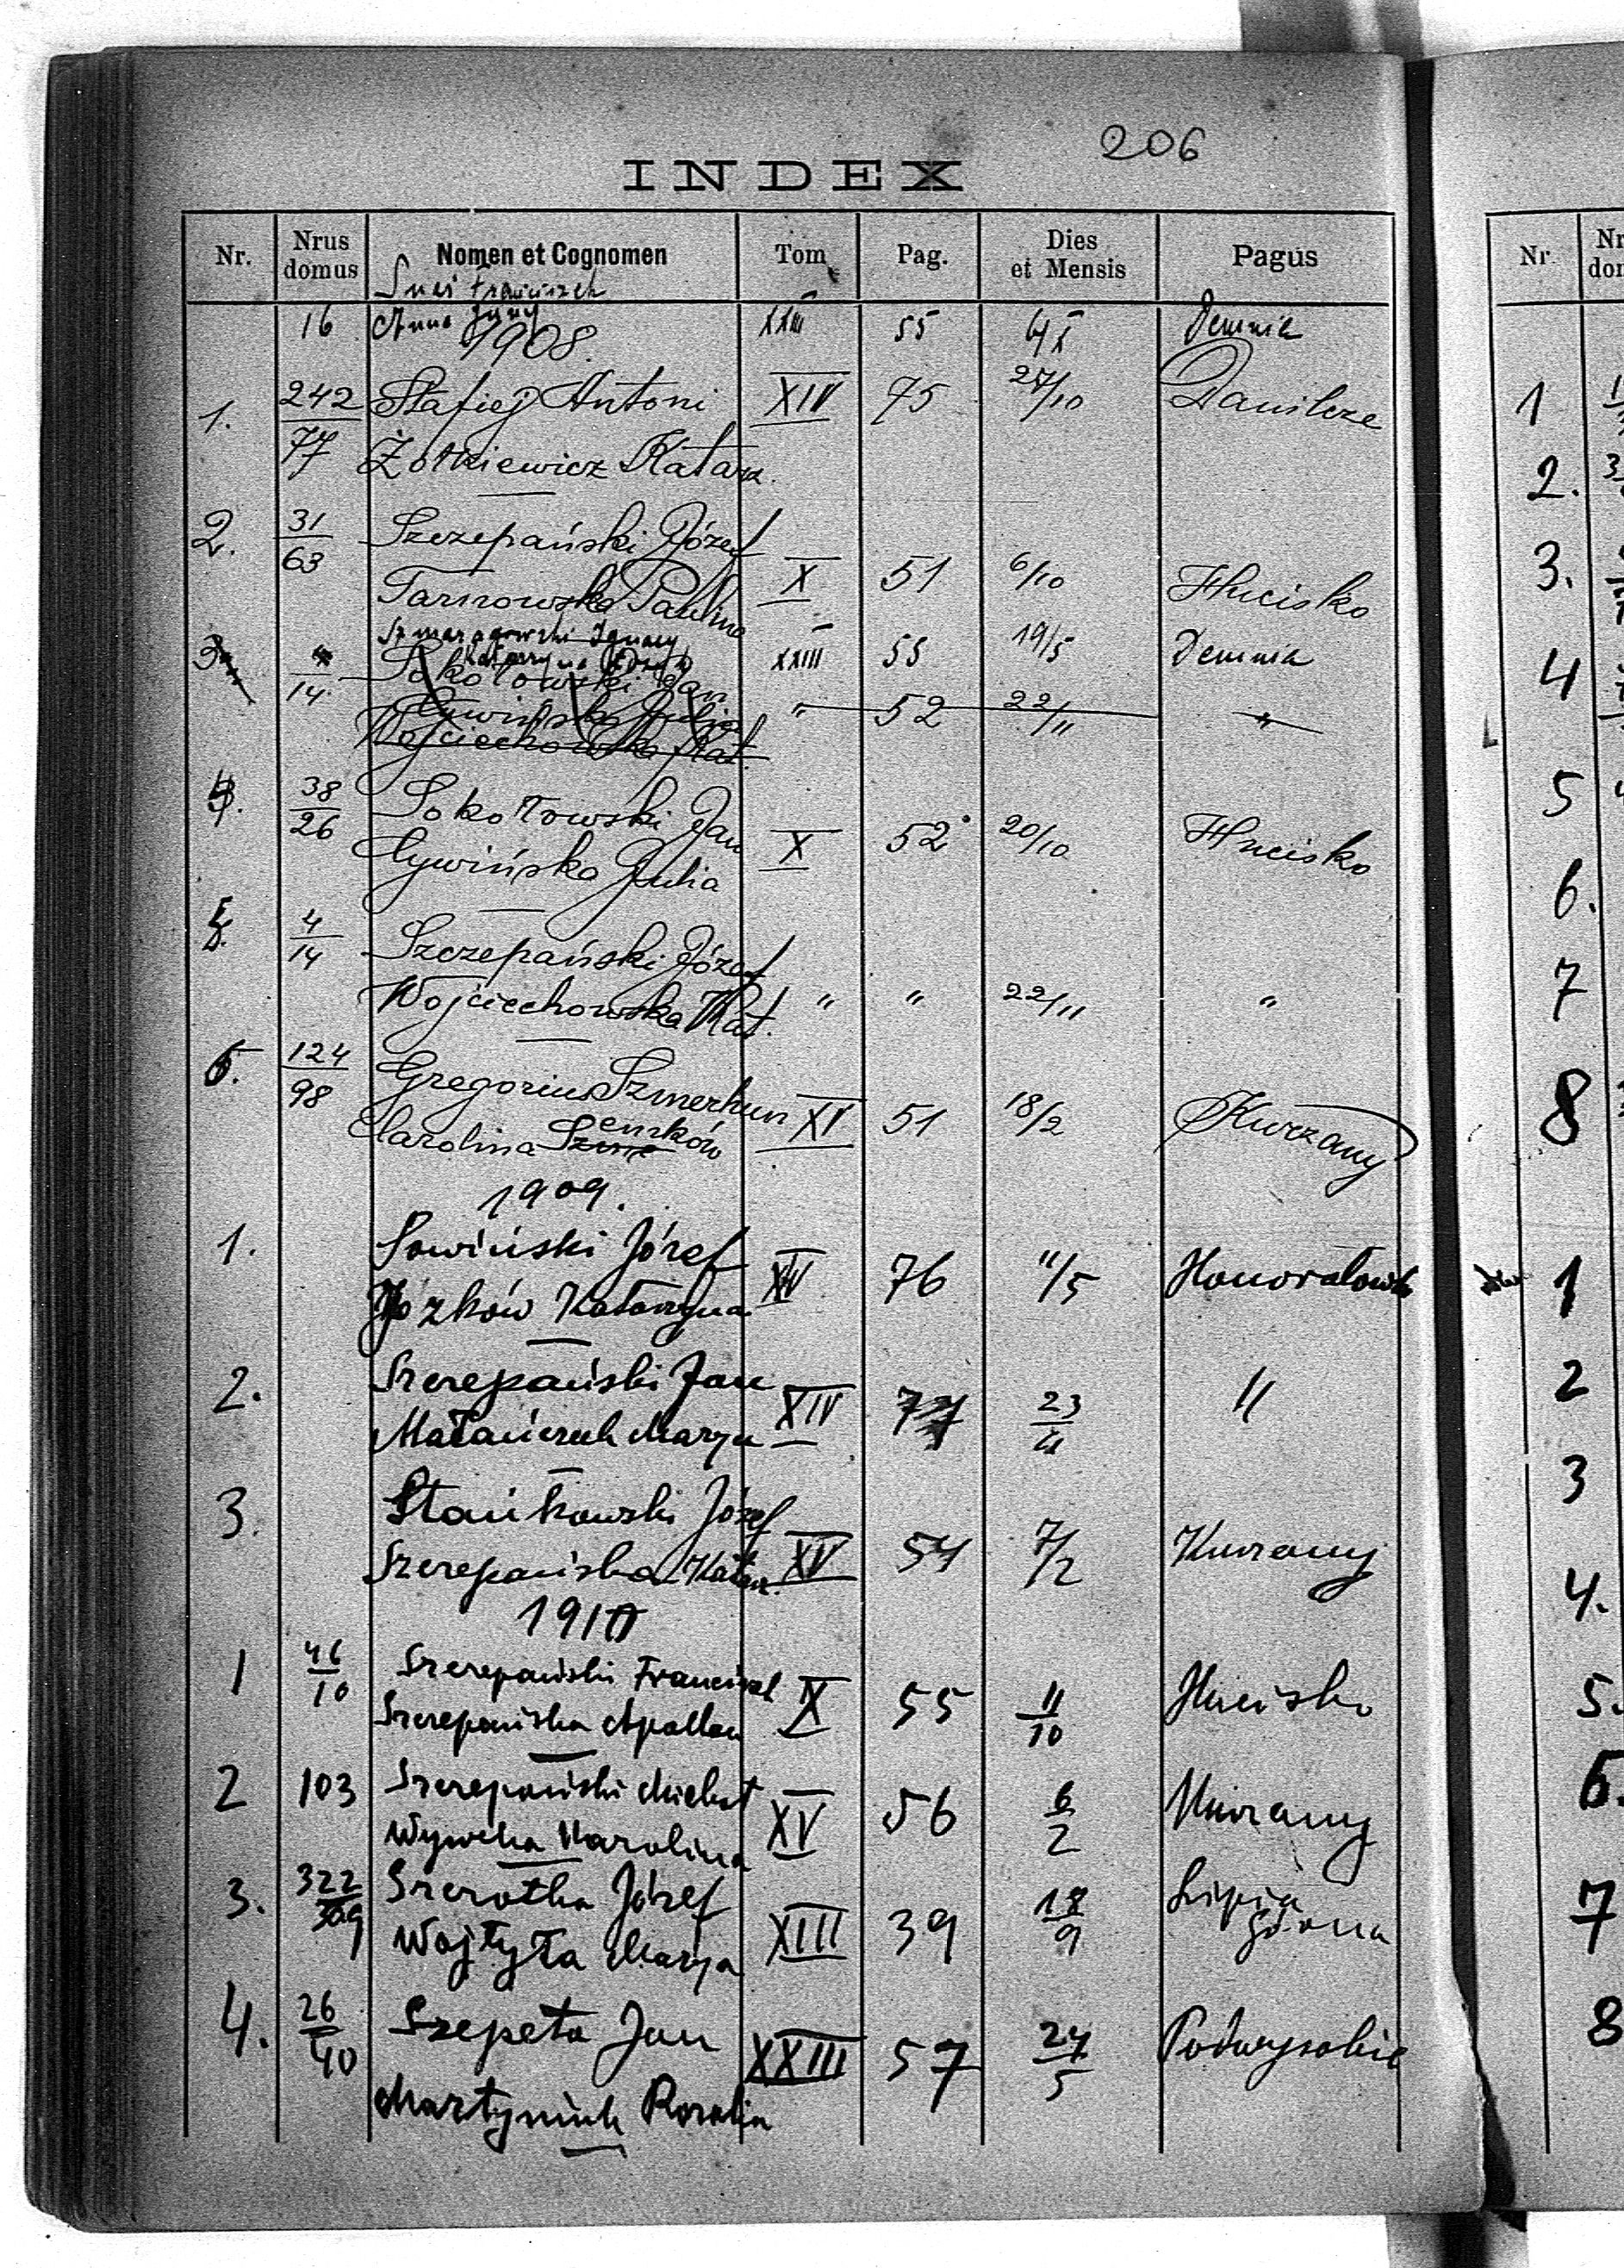 206
INDEX
Nr. Nrus domus Nomen et Cognomen Tom Pag. Dies et Mensis Pagus
16 Anna XXIII 55 Demnia
1908.
1. 242/77 Stafiej Antoni XIV 75 27/10 Danilcze
Żołkiewicz Katarz.
2. 31/63 Szczepański Józef
Tarnowska Paulina X 51 6/10 Hucisko
Szmaragowski Ignacy XXIII 55 19/5 Demnia
Katarzyna
3. 4/14 Sokołowski Jan
Cywińska Julia " 52 22/11 "
Wojciechowska Kat.
4. 38/26 Sokołowski Jan
Cywińska Julia X 52 20/10 Hucisko
5. 4/14 Szczepański Józef
Wojciechowska Kat. " " 22/11 "
6. 124/98 Gregorius Szmerkun XV 51 18/2 Kurzany
Carolina Szenków
1909.
1. Sowiński Józef XIV 76 11/5 Honoratówka
Józków Katarzyna
2. Szczepański Jan XIV 77 23/11 "
Małańczuk Marya
3. Stańkowski Józef
Szczepańska Katarz. XV 54 7/2 Kurzany
1910
1 46/10 Szczepański Franciszek X 55 11/10 Hucisko
Szczepańska Apollon
2 103 Szczepański Michał XV 56 6/2 Kurzany
Karolina
3. 322/309 Szczotka Józef XIII 39 18/9 Lipica Górna
Wojtyła Marya
4. 26/40 Szepeta Jan XXIII 57 24/5 Podwysokie
Martyniuk Rozalia
Nr
1
2.
3.
4
5
6.
7
8
1
2
3
4.
5.
6.
7
8